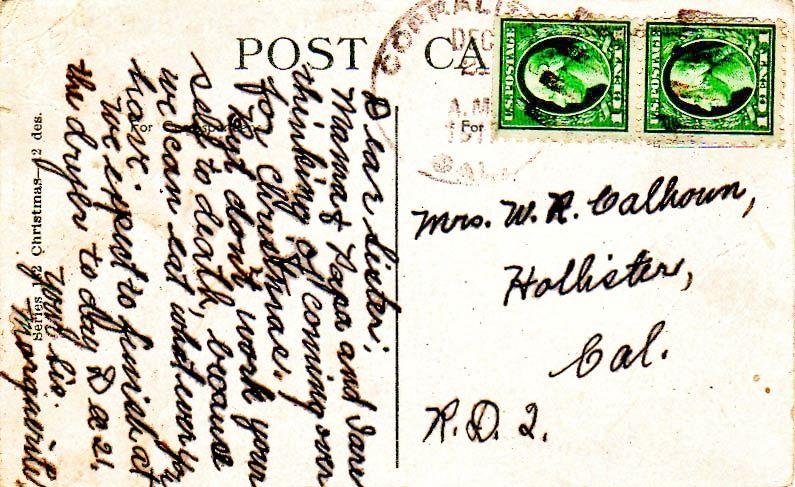 POST CA
CORRALIT
DEC
A.M.
191
CAL.
U.S. POSTAGE
1 CENT 1
U.S. POSTAGE
1 CENT 1
For
For
Series 1 2 Christmas—12 des.
Dear Sister;
Mama & Papa and I are
thinking of coming over
for Christmas.
But don't work your
self to death, because
we can eat what ever you
have.
We expect to finish at
the dryer to day D 21.
your Sis.
Marguerite.
Mrs. W. R. Calhoun,
Hollister,
Cal.
R.D. 2.